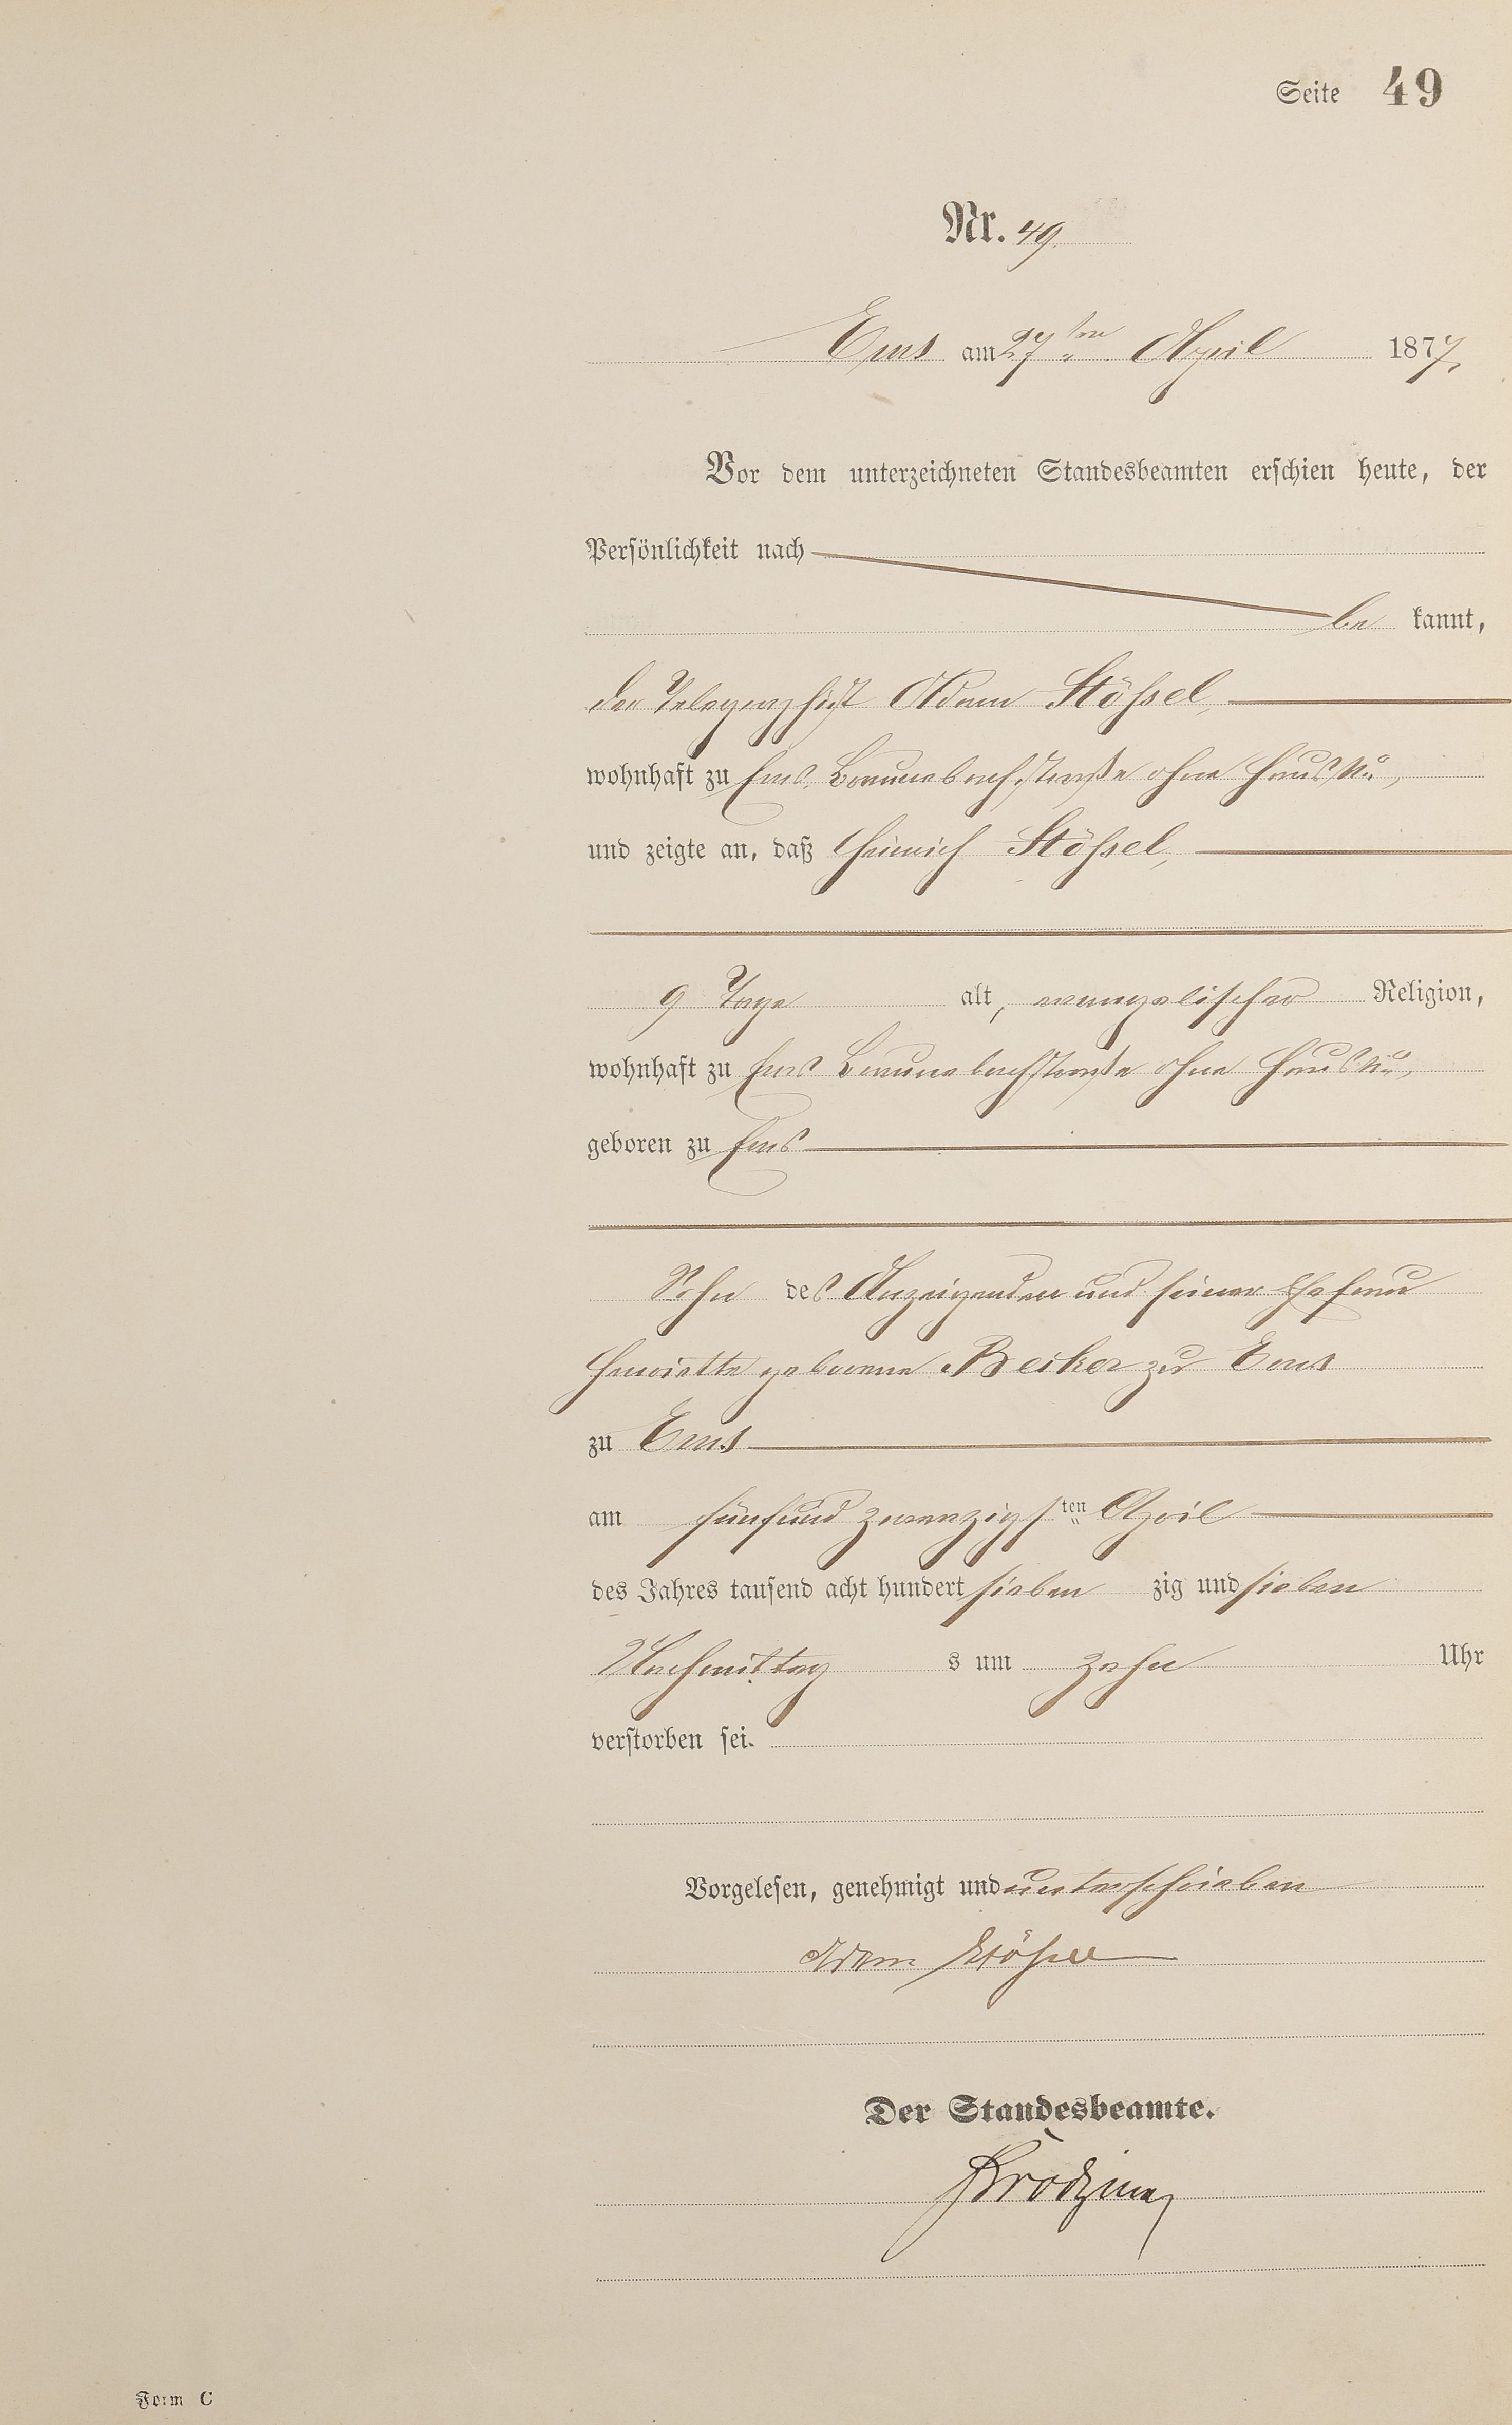 Seite 49
Nr. 49.
Ems am 27ten April 1877,
Vor dem unterzeichneten Standesbeamten erschien heute, der
Persönlichkeit nach
be kannt,
der Telegraphist Adam Stößel,
wohnhaft zu Ems, Braunebachstraße ohne Haus No,
und zeigte an, daß Heinrich Stößel,
9 Tage alt, evangelischer Religion,
wohnhaft zu Ems Braunebachstraße ohne Haus No,
geboren zu Ems
Sohn des Anzeigenden und seiner Ehefrau
Henriette geborene Becker zu Ems
zu Ems
am fünfundzwanzigsten April
des Jahres tausend acht hundert sieben zig und sieben
Nachmittag s um zehn Uhr
verstorben sei.
Vorgelesen, genehmigt und unterschrieben
Adam Stößel
Der Standesbeamte.
Form C